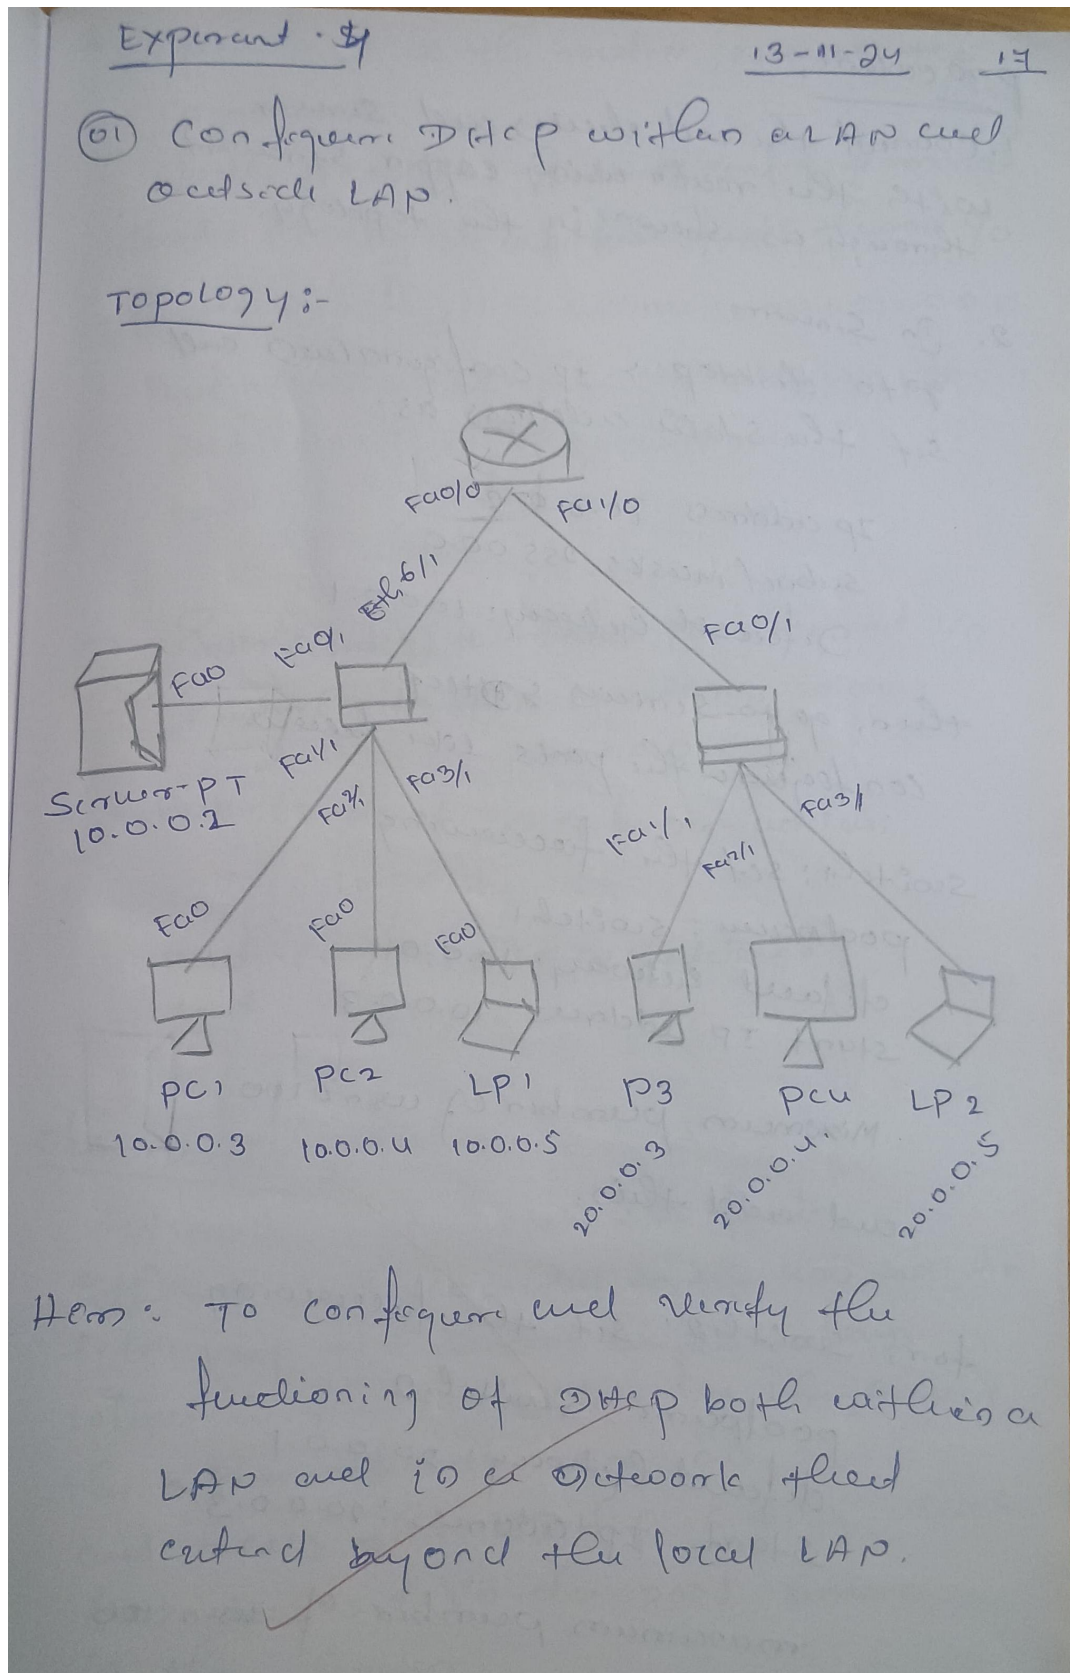 Experiment - 4
13-11-24 17
01 Configure DHCP within a LAN and
outside LAN.
Topology :-
Fa0/0 Fa1/0
Eth 6/1
Fa0/1
Fa0/1
Fa0
Server-PT
10.0.0.2
Fa1/1 Fa2/1 Fa3/1
Fa1/1 Fa2/1 Fa3/1
Fa0 Fa0 Fa0
PC1 PC2 LP1 P3 PC4 LP2
10.0.0.3 10.0.0.4 10.0.0.5 20.0.0.3 20.0.0.4. 20.0.0.5
To configure and verify the
functioning of DHCP both within a
LAN and in a network that
extend beyond the local LAN.